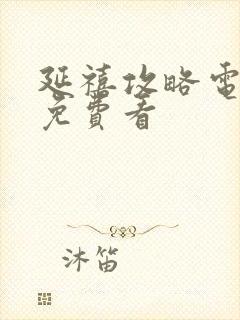 延禧攻略電
免費看
沐笛